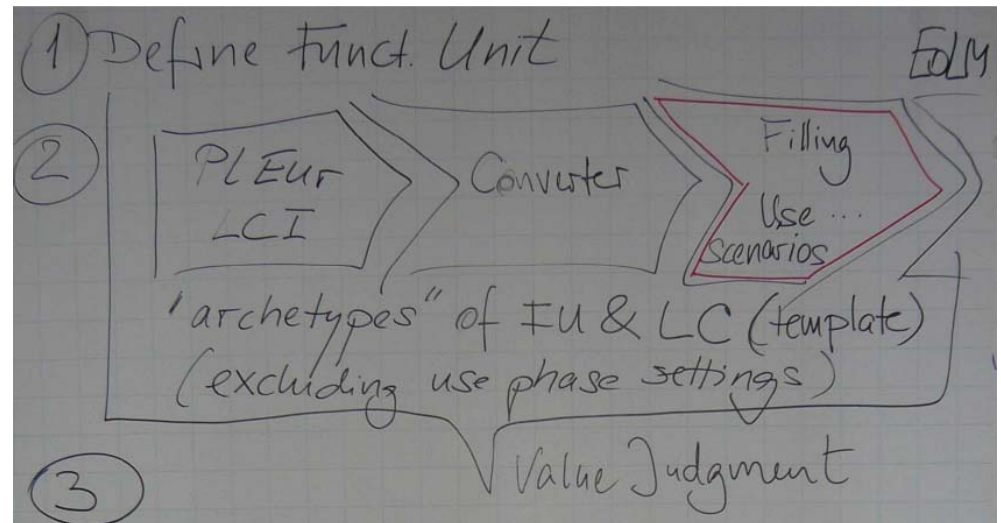 1 Define Funct. Unit
EoLM
2
PlEur
LCI
Converter
Filling
Use ...
Scenarios
"archetypes" of FU & LC (template)
(excluding use phase settings)
3
Value Judgment